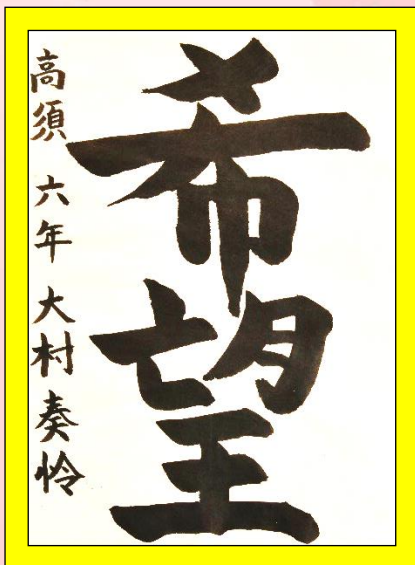 希望
高須 六年 大村奏怜